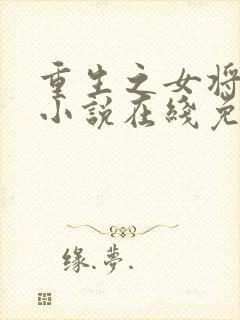 重生之女将
小说在线免
缘.梦.